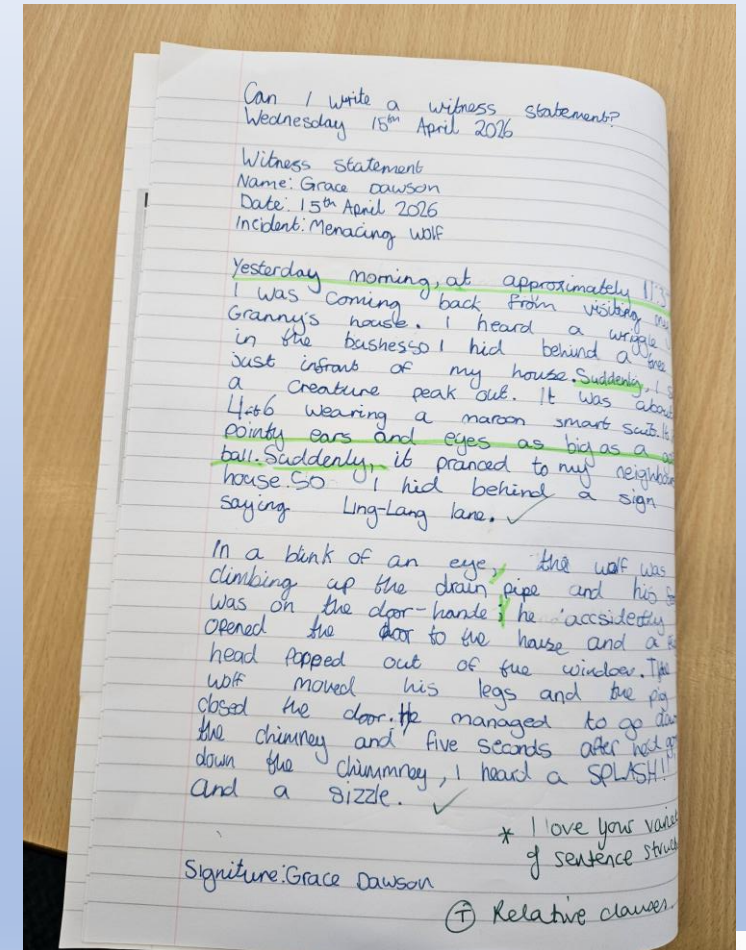 Can I write a witness statement?
Wednesday 15th April 2026
Witness Statement
Name: Grace Dawson
Date: 15th April 2026
Incident: Menacing Wolf
Yesterday morning, at approximately
I was coming back from visiting
Granny's house. I heard a wriggle
in the bushes so I hid behind a tree
just infront of my house. Suddenly, I
a creature peak out. It was about
wearing a maroon smart suit. It
pointy ears and eyes as big as a
ball. Suddenly, it pranced to my
house. So I hid behind a sign
saying Ling-Lang lane.
In a blink of an eye, the wolf was
climbing up the drain pipe and his
was on the door-hande; he accsidently
opened the door to the house and a
head popped out of the window. The
wolf moved his legs and the pig
closed the door. He managed to go
the chimney and five seconds after
down the chimmney, I heard a SPLASH!
and a sizzle.
* I love your
of sentence
Signiture: Grace Dawson
T Relative clauses